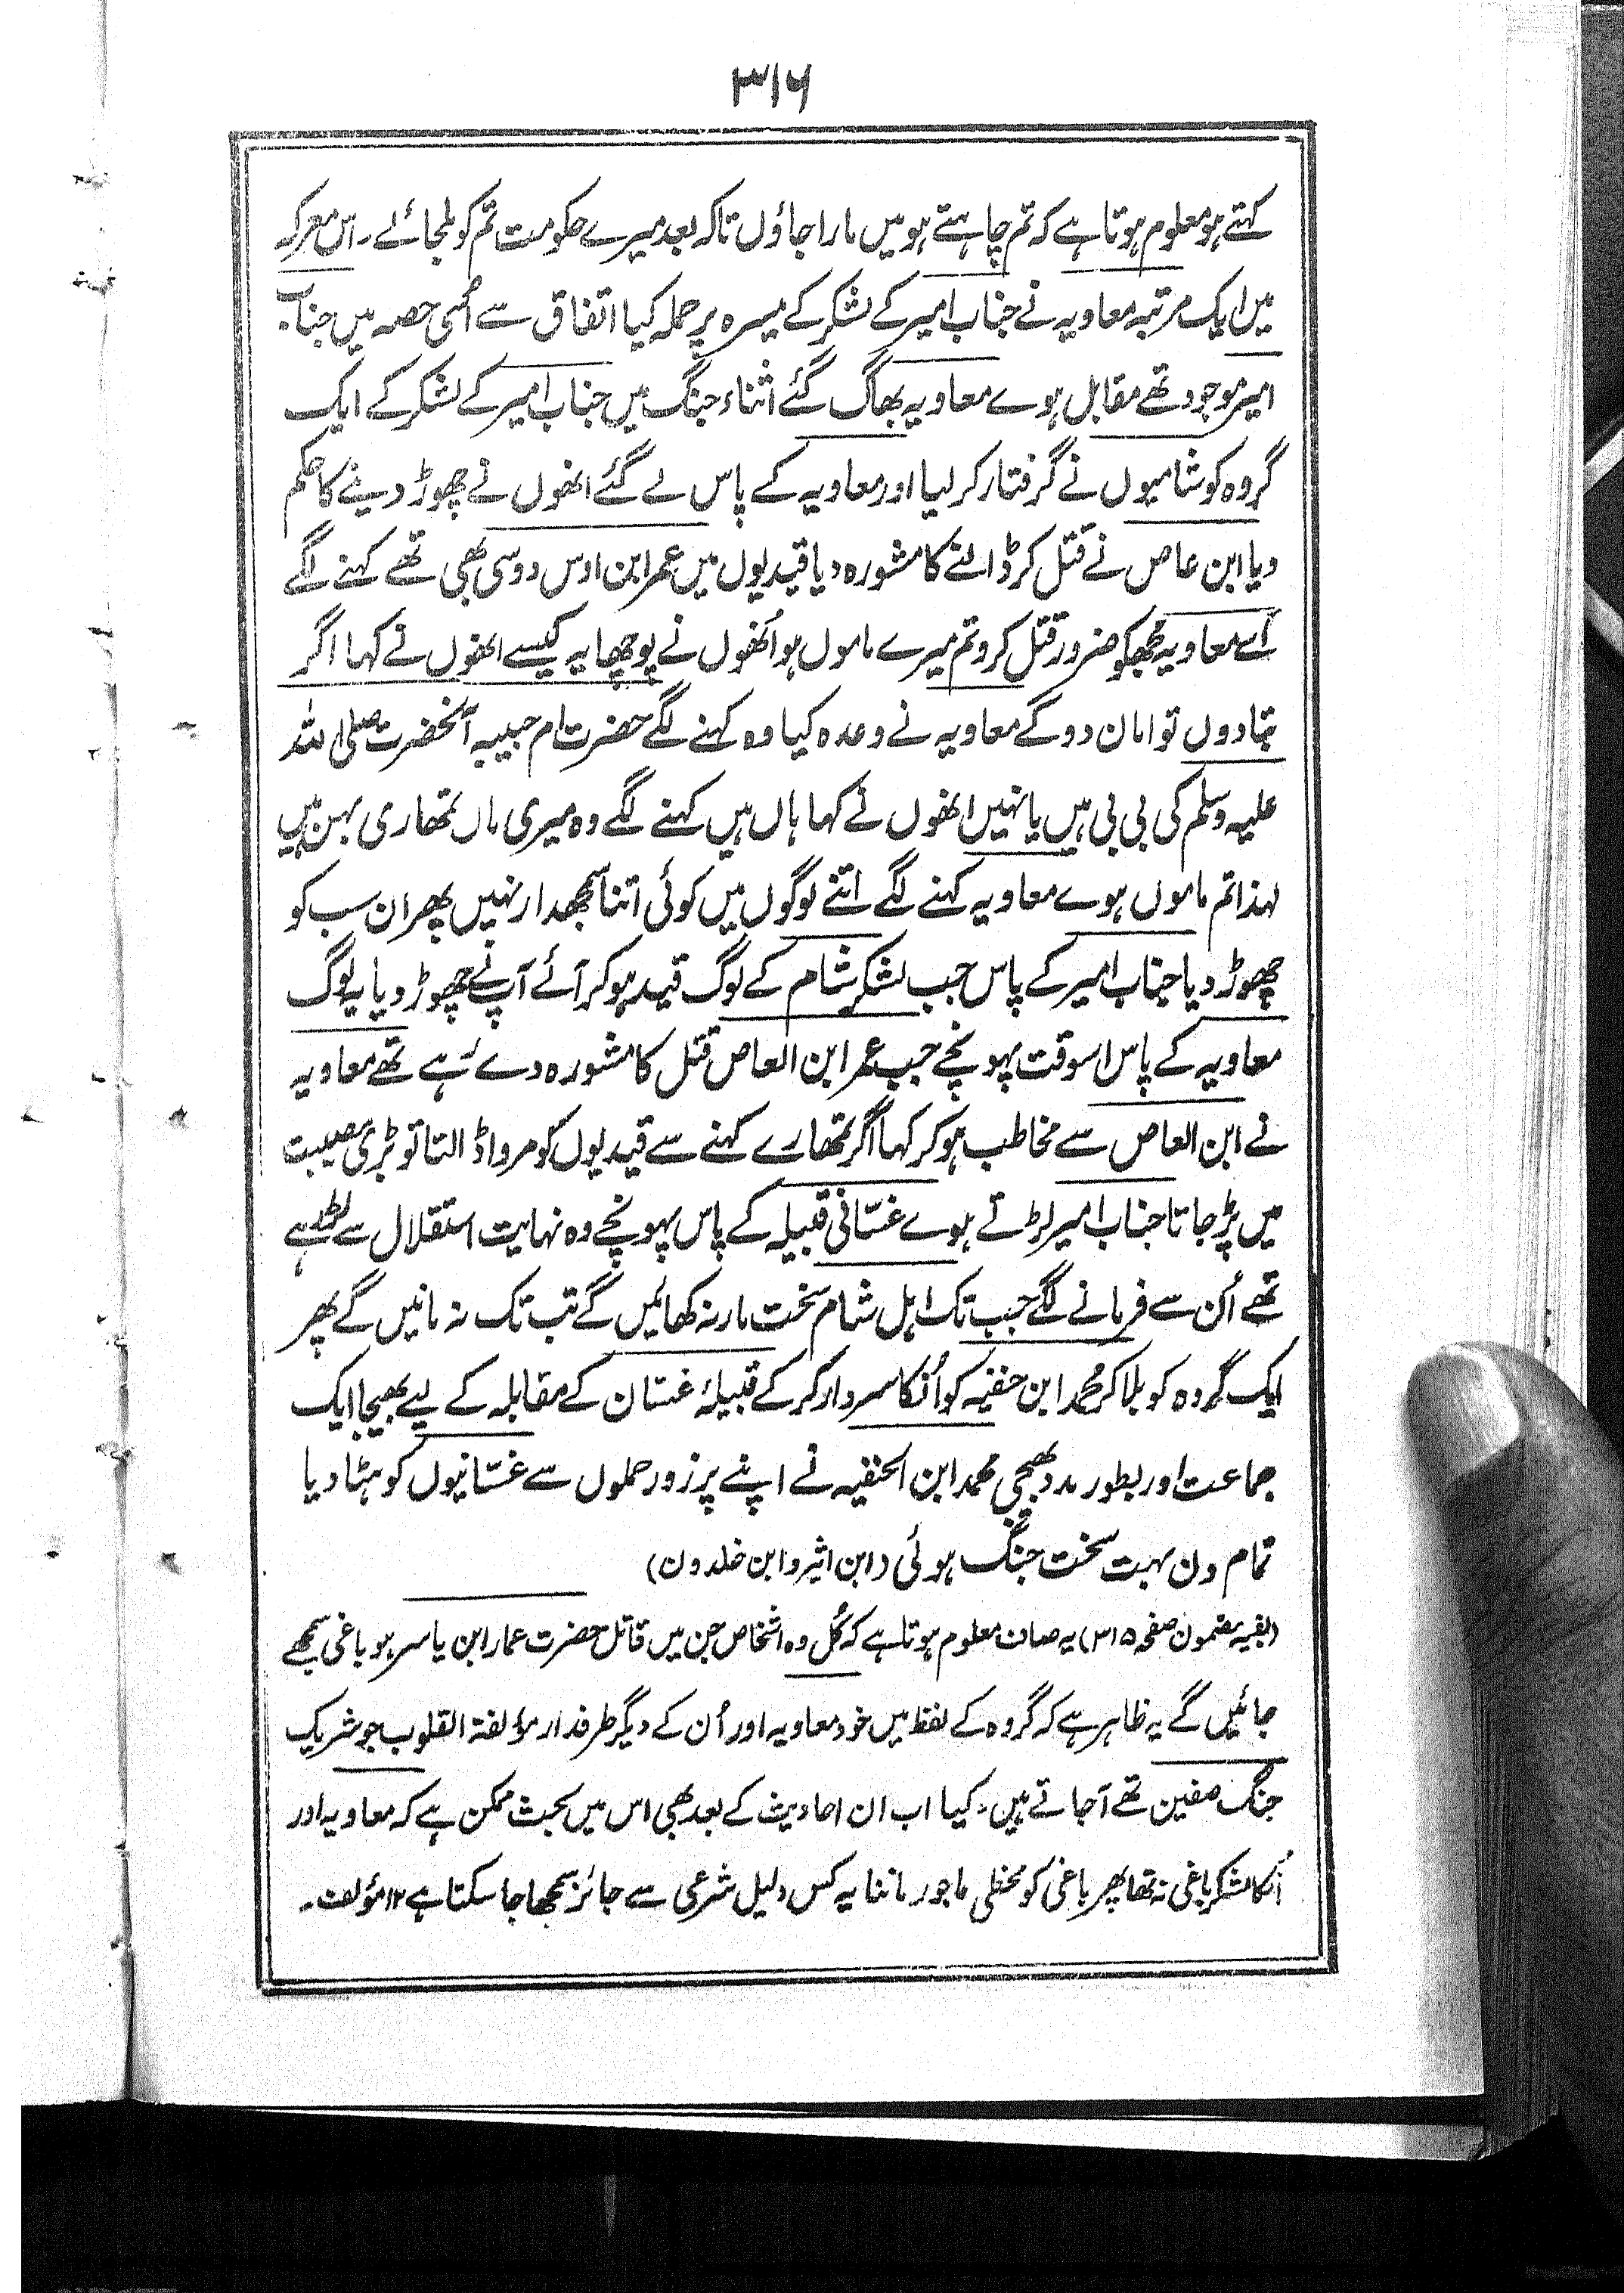 ۳۱۶
کہتے ہو معلوم ہوتا ہے کہ تم چاہتے ہو میں مارا جاؤں تاکہ بعد میرے حکومت تم کو ملجائے ۔ اس معرکہ
میں ایک مرتبہ معاویہ نے جناب امیر کے لشکر کے میسرہ پر حملہ کیا اتفاق سے اُسی حصہ میں جناب
امیر موجود تھے مقابل ہوے معاویہ بھاگ گئے اثناء جنگ میں جناب امیر کے لشکر کے ایک
گروہ کو شامیوں نے گرفتار کر لیا اور معاویہ کے پاس لے گئے انھوں نے چھوڑ دینے کا حکم
دیا ابن عاص نے قتل کر ڈالنے کا مشورہ دیا قیدیوں میں عمر ابن اوس دوسی بھی تھے کہنے لگے
اے معاویہ مجھکو ضرور قتل کرو تم میرے ماموں ہو اُنھوں نے پوچھا یہ کیسے انھوں نے کہا اگر
بتادوں تو امان دو گے معاویہ نے وعدہ کیا وہ کہنے لگے حضرت ام حبیبہ آنحضرت صلی اللہ
علیہ وسلم کی بی بی ہیں یا نہیں انھوں نے کہا ہاں ہیں کہنے لگے وہ میری ماں تمھاری بہن ہیں
لہذا تم ماموں ہوے معاویہ کہنے لگے اتنے لوگوں میں کوئی اتنا سمجھدار نہیں پھر ان سب کو
چھوڑ دیا جناب امیر کے پاس جب لشکر شام کے لوگ قید ہو کر آئے آپ نے چھوڑ دیا یہ لوگ
معاویہ کے پاس اسوقت پہونچے جب عمر ابن العاص قتل کا مشورہ دے رہے تھے معاویہ
نے ابن العاص سے مخاطب ہو کر کہا اگر تمھارے کہنے سے قیدیوں کو مروا ڈالتا تو بڑی مصیبت
میں پڑ جاتا جناب امیر لڑتے ہوے غسّانی قبیلہ کے پاس پہونچے وہ نہایت استقلال سے لڑ رہے
تھے اُن سے فرمانے لگے جب تک اہل شام سخت مار نہ کھائیں گے تب تک نہ مانیں گے پھر
ایک گروہ کو بلا کر محمد ابن حنفیہ کو اُنکا سردار کر کے قبیلۂ غسّان کے مقابلہ کے لیے بھیجا ایک
جماعت اور بطور مدد بھیجی محمد ابن الحنفیہ نے اپنے پرزور حملوں سے غسّانیوں کو ہٹا دیا
تمام دن بہت سخت جنگ ہوئی (ابن اثیر و ابن خلدون)
(بقیہ مضمون صفحہ ۳۱۵) یہ صاف معلوم ہوتا ہے کہ کُل وہ اشخاص جن میں قاتل حضرت عمار ابن یاسر ہو باغی سمجھے
جائیں گے یہ ظاہر ہے کہ گروہ کے لفظ میں خود معاویہ اور اُن کے دیگر طرفدار مؤلفۃ القلوب جو شریک
جنگ صفین تھے آجاتے ہیں ۔ کیا اب ان احادیث کے بعد بھی اس میں بحث ممکن ہے کہ معاویہ اور
اُنکا لشکر باغی نہ تھا پھر باغی کو مخطی ماجور ماننا یہ کس دلیل شرعی سے جائز سمجھا جا سکتا ہے ۱۲ مؤلف ۔